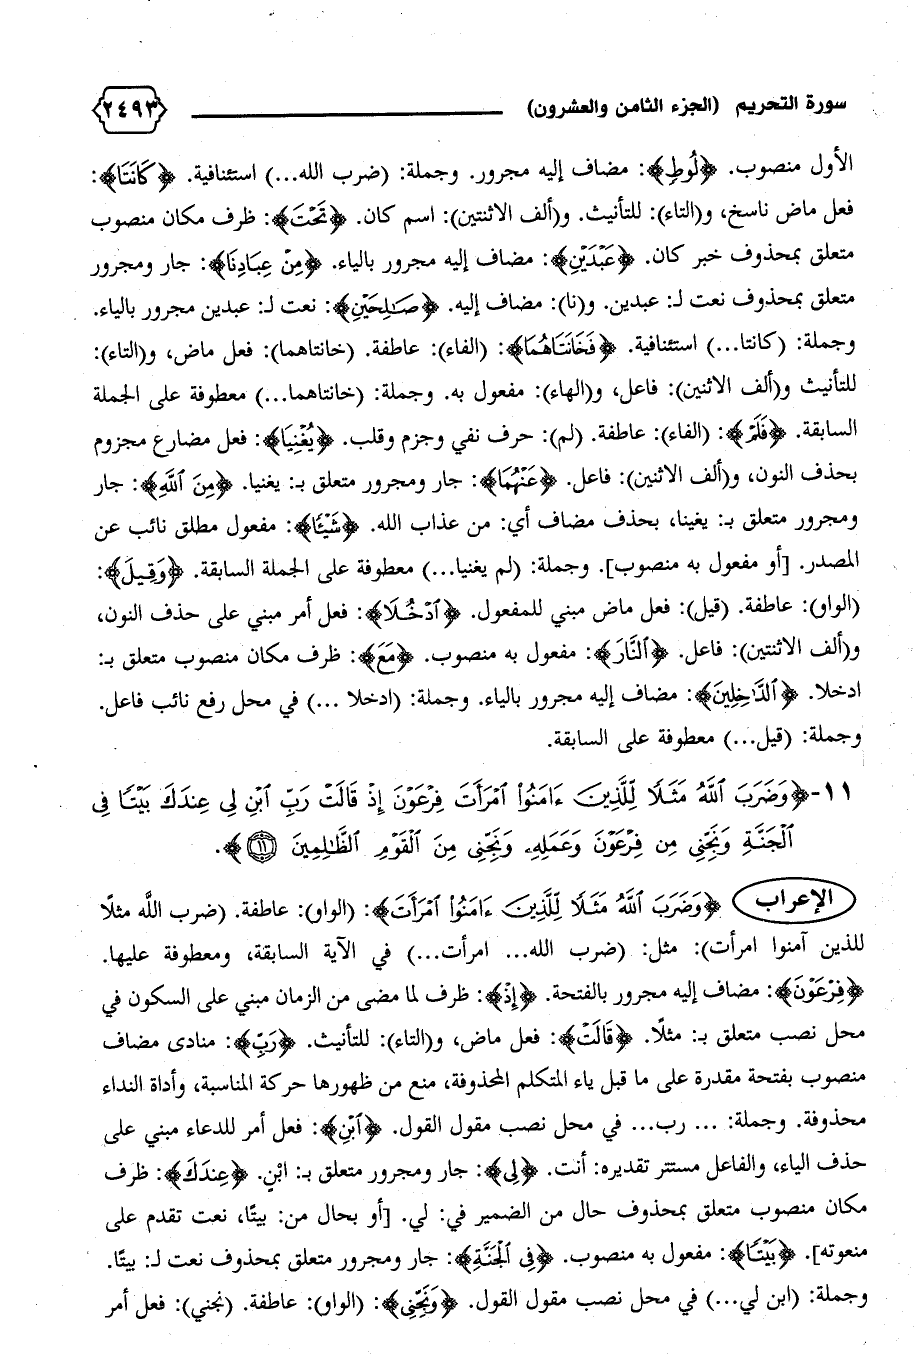 سورة التحريم (الجزء الثامن والعشرون) ٢٤٩٣
الأول منصوب. ﴿لُوطٍ﴾: مضاف إليه مجرور. وجملة: (ضرب الله...) استئنافية. ﴿كَانَتَا﴾:
فعل ماض ناسخ، و(التاء): للتأنيث. و(ألف الاثنتين): اسم كان. ﴿تَحْتَ﴾: ظرف مكان منصوب
متعلق بمحذوف خبر كان. ﴿عَبْدَيْنِ﴾: مضاف إليه مجرور بالياء. ﴿مِنْ عِبَادِنَا﴾: جار ومجرور
متعلق بمحذوف نعت لـ: عبدين. و(نا): مضاف إليه. ﴿صَـٰلِحَيْنِ﴾: نعت لـ: عبدين مجرور بالياء.
وجملة: (كانتا...) استئنافية. ﴿فَخَانَتَاهُمَا﴾: (الفاء): عاطفة. (خانتاهما): فعل ماض، و(التاء):
للتأنيث و(ألف الاثنين): فاعل، و(الهاء): مفعول به. وجملة: (خانتاهما...) معطوفة على الجملة
السابقة. ﴿فَلَمْ﴾: (الفاء): عاطفة. (لم): حرف نفي وجزم وقلب. ﴿يُغْنِيَا﴾: فعل مضارع مجزوم
بحذف النون، و(ألف الاثنين): فاعل. ﴿عَنْهُمَا﴾: جار ومجرور متعلق بـ: يغنيا. ﴿مِنَ ٱللَّهِ﴾: جار
ومجرور متعلق بـ: يغينا، بحذف مضاف أي: من عذاب الله. ﴿شَيْـًٔا﴾: مفعول مطلق نائب عن
المصدر. [أو مفعول به منصوب]. وجملة: (لم يغنيا...) معطوفة على الجملة السابقة. ﴿وَقِيلَ﴾:
(الواو): عاطفة. (قيل): فعل ماض مبني للمفعول. ﴿ٱدْخُلَا﴾: فعل أمر مبني على حذف النون،
و(ألف الاثنتين): فاعل. ﴿ٱلنَّارَ﴾: مفعول به منصوب. ﴿مَعَ﴾: ظرف مكان منصوب متعلق بـ:
ادخلا. ﴿ٱلدَّٰخِلِينَ﴾: مضاف إليه مجرور بالياء. وجملة: (ادخلا ...) في محل رفع نائب فاعل.
وجملة: (قيل...) معطوفة على السابقة.
١١- ﴿وَضَرَبَ ٱللَّهُ مَثَلًا لِّلَّذِينَ ءَامَنُوا۟ ٱمْرَأَتَ فِرْعَوْنَ إِذْ قَالَتْ رَبِّ ٱبْنِ لِى عِندَكَ بَيْتًا فِى
ٱلْجَنَّةِ وَنَجِّنِى مِن فِرْعَوْنَ وَعَمَلِهِۦ وَنَجِّنِى مِنَ ٱلْقَوْمِ ٱلظَّـٰلِمِينَ ۝١١﴾.
الإعراب ﴿وَضَرَبَ ٱللَّهُ مَثَلًا لِّلَّذِينَ ءَامَنُوا۟ ٱمْرَأَتَ﴾: (الواو): عاطفة. (ضرب اللَّه مثلًا
للذين آمنوا امرأت): مثل: (ضرب الله... امرأت...) في الآية السابقة، ومعطوفة عليها.
﴿فِرْعَوْنَ﴾: مضاف إليه مجرور بالفتحة. ﴿إِذْ﴾: ظرف لما مضى من الزمان مبني على السكون في
محل نصب متعلق بـ: مثلًا. ﴿قَالَتْ﴾: فعل ماض، و(التاء): للتأنيث. ﴿رَبِّ﴾: منادى مضاف
منصوب بفتحة مقدرة على ما قبل ياء المتكلم المحذوفة، منع من ظهورها حركة المناسبة، وأداة النداء
محذوفة. وجملة: ... رب... في محل نصب مقول القول. ﴿ٱبْنِ﴾: فعل أمر للدعاء مبني على
حذف الياء، والفاعل مستتر تقديره: أنت. ﴿لِى﴾: جار ومجرور متعلق بـ: ابْنِ. ﴿عِندَكَ﴾: ظرف
مكان منصوب متعلق بمحذوف حال من الضمير في: لي. [أو بحال من: بيتًا، نعت تقدم على
منعوته]. ﴿بَيْتًا﴾: مفعول به منصوب. ﴿فِى ٱلْجَنَّةِ﴾: جار ومجرور متعلق بمحذوف نعت لـ: بيتًا.
وجملة: (ابن لي...) في محل نصب مقول القول. ﴿وَنَجِّنِى﴾: (الواو): عاطفة. (نجني): فعل أمر